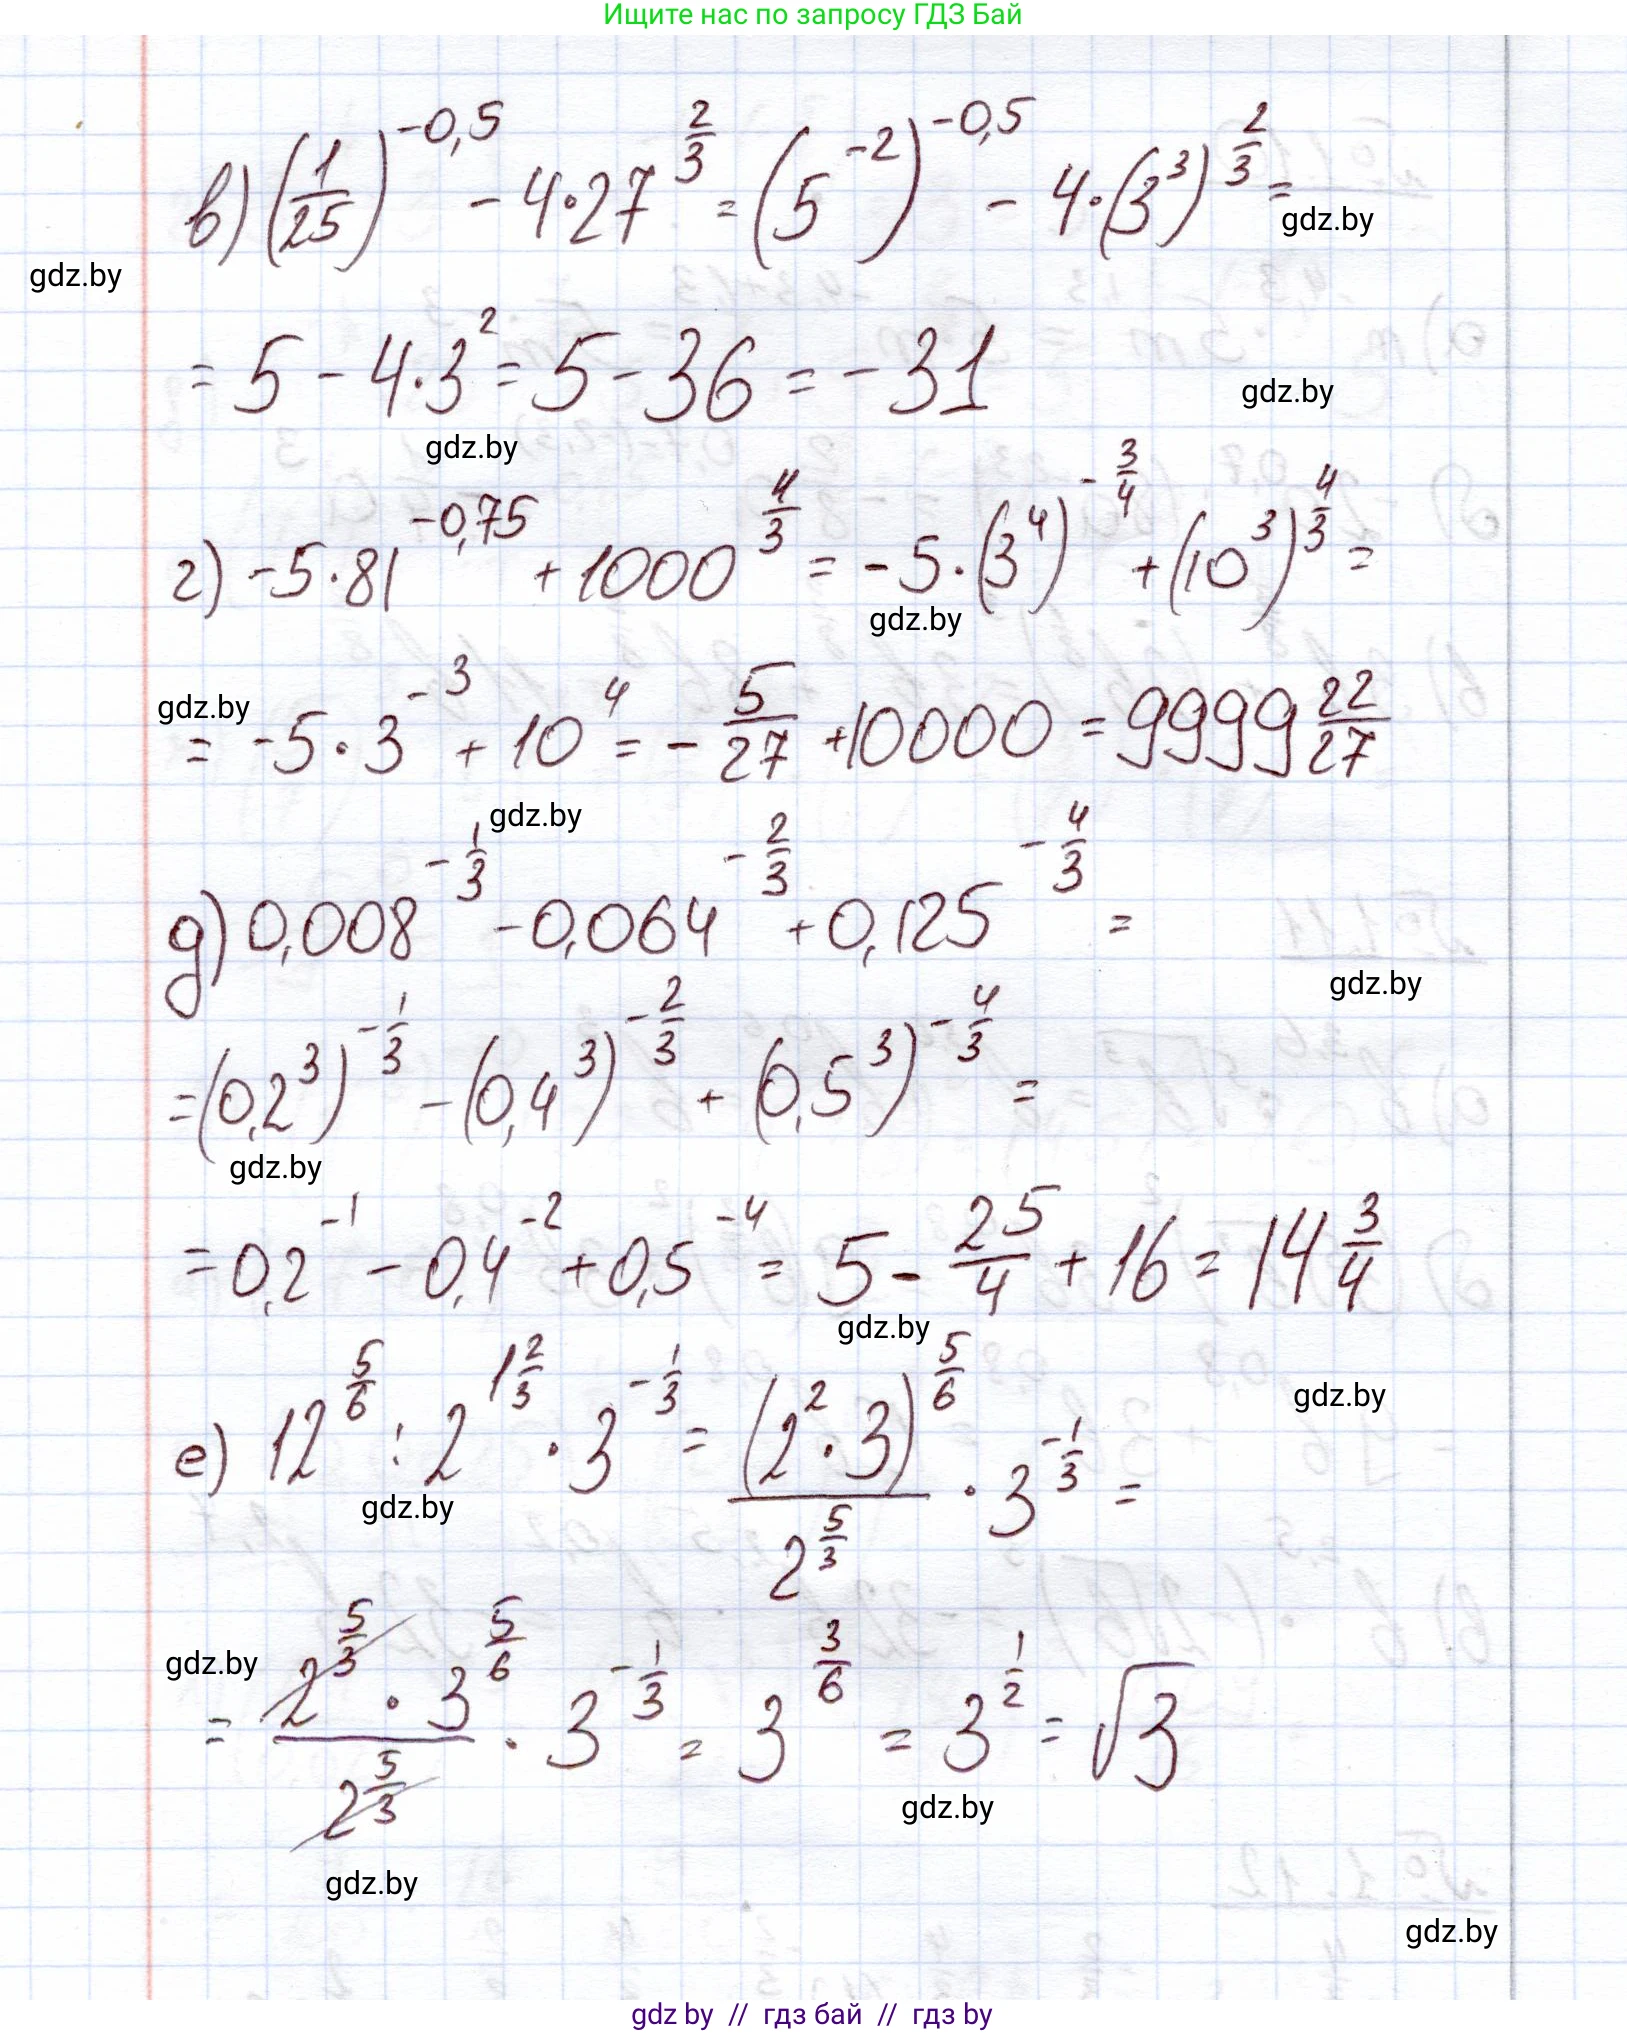 Ищите нас по запросу ГДЗ Бай
в) (1/25)^(-0,5) - 4·27^(2/3) = (5^(-2))^(-0,5) - 4·(3^3)^(2/3) =
gdz.by
gdz.by
= 5 - 4·3^2 = 5 - 36 = -31
gdz.by
gdz.by
г) -5·81^(-0,75) + 1000^(4/3) = -5·(3^4)^(-3/4) + (10^3)^(4/3) =
gdz.by
gdz.by
= -5·3^(-3) + 10^4 = -5/27 + 10000 = 9999 22/27
gdz.by
д) 0,008^(-1/3) - 0,064^(-2/3) + 0,125^(-4/3) =
gdz.by
= (0,2^3)^(-1/3) - (0,4^3)^(-2/3) + (0,5^3)^(-4/3) =
gdz.by
= 0,2^(-1) - 0,4^(-2) + 0,5^(-4) = 5 - 25/4 + 16 = 14 3/4
gdz.by
gdz.by
е) 12^(5/6) : 2^(1 2/3) · 3^(-1/3) = (2^2·3)^(5/6) / 2^(5/3) · 3^(-1/3) =
gdz.by
gdz.by
= 2^(5/3) · 3^(5/6) / 2^(5/3) · 3^(-1/3) = 3^(3/6) = 3^(1/2) = √3
gdz.by
gdz.by
gdz.by
gdz.by // гдз бай // гдз by